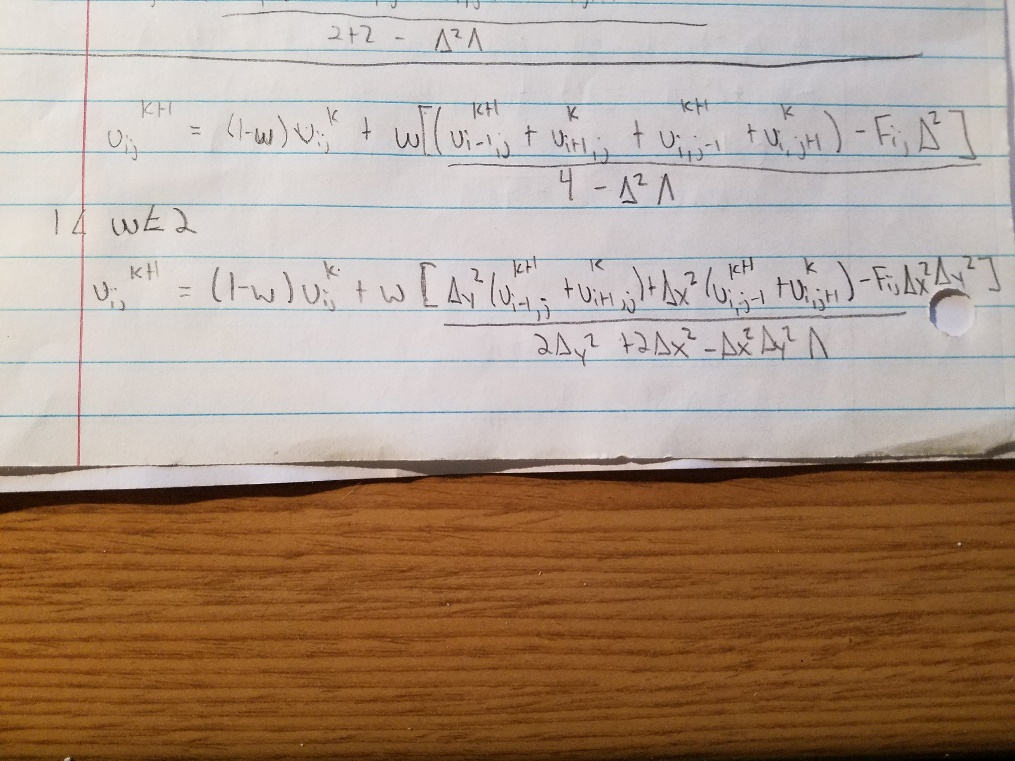 2+2 - Δ²Λ
u_{ij}^{k+1} = (1-w)u_{ij}^{k} + w[(u_{i-1,j}^{k+1} + u_{i+1,j}^{k} + u_{i,j-1}^{k+1} + u_{i,j+1}^{k}) - F_{ij}Δ²]
4 - Δ²Λ
1 < w < 2
u_{ij}^{k+1} = (1-w)u_{ij}^{k} + w[Δy²(u_{i-1,j}^{k+1} + u_{i+1,j}^{k}) + Δx²(u_{i,j-1}^{k+1} + u_{i,j+1}^{k}) - F_{ij}Δx²Δy²]
2Δy² + 2Δx² - Δx²Δy²Λ